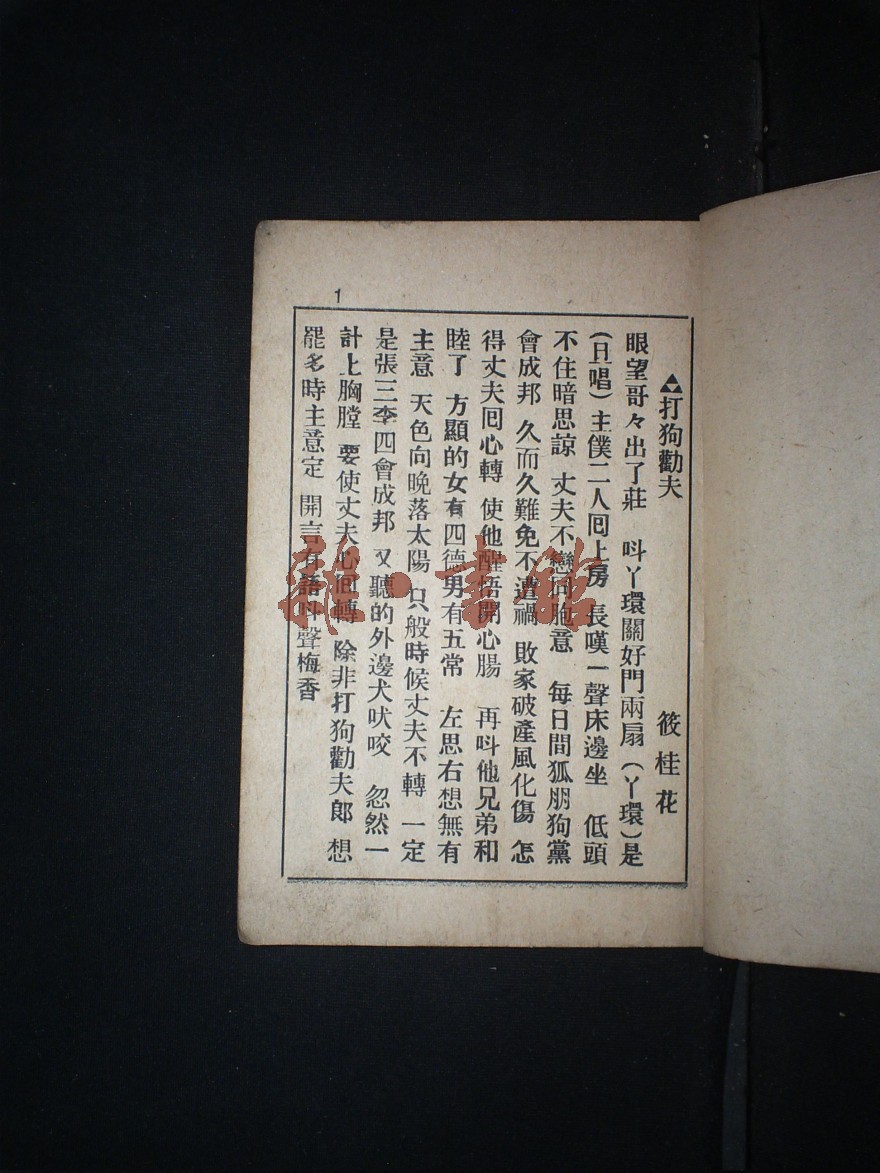 1
打狗勸夫 筱桂花
眼望哥々出了莊 呌丫環關好門兩扇(丫環)是
(旦唱)主僕二人囘上房 長嘆一聲床邊坐 低頭
不住暗思諒 丈夫不戀同胞意 每日間狐朋狗黨
會成邦 久而久難免不遭禍 敗家破產風化傷 怎
得丈夫囘心轉 使他醒悟開心腸 再呌他兄弟和
睦了 方顯的女有四德男有五常 左思右想無有
主意 天色向晚落太陽 只般時候丈夫不轉 一定
是張三李四會成邦 又聽的外邊犬吠咬 忽然一
計上胸膛 要使丈夫心囘轉 除非打狗勸夫郎 想
罷多時主意定 開言有語呌聲梅香
雜·書館